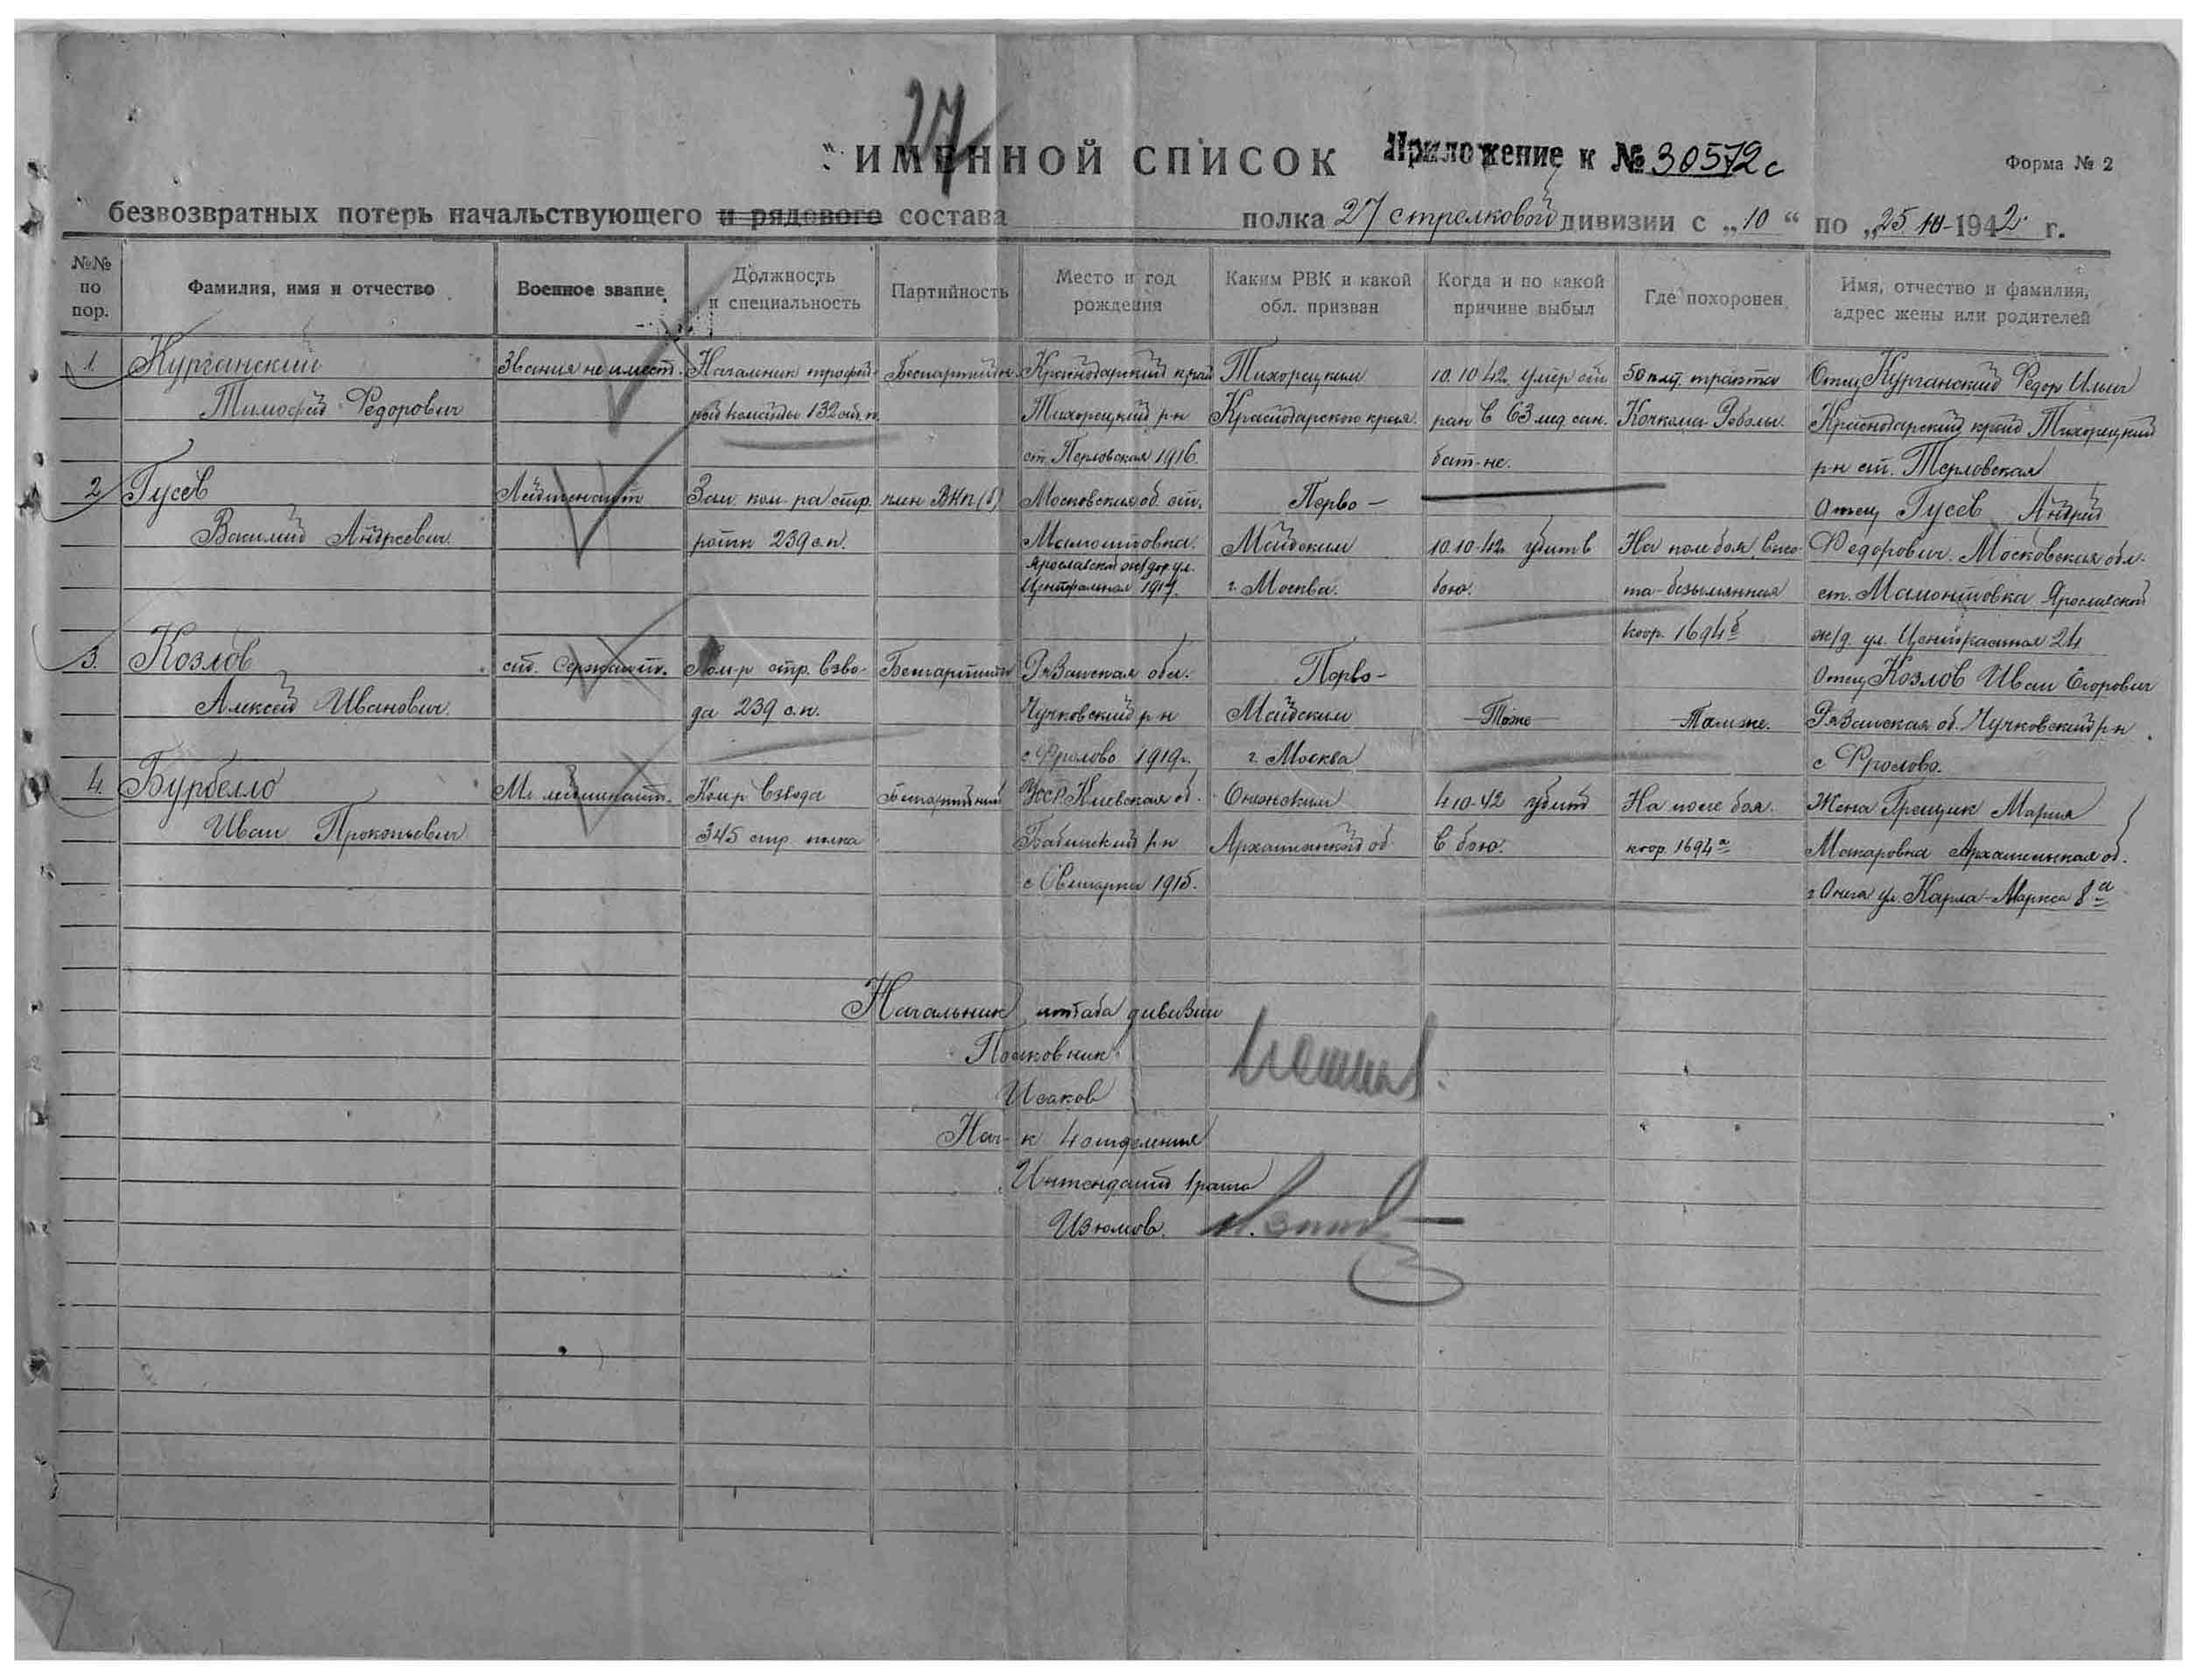 27
ИМЕННОЙ СПИСОК Приложение к № 30572с
Форма № 2
безвозвратных потерь начальствующего и рядового состава полка 27 стрелковой дивизии с „10“ по „25 10-1942 г.
№№ по пор.
Фамилия, имя и отчество
Военное звание
Должность и специальность
Партийность
Место и год рождения
Каким РВК и какой обл. призван
Когда и по какой причине выбыл
Где похоронен
Имя, отчество и фамилия, адрес жены или родителей
1. Курганский Звания не имеет. Начальник трофей- Беспартийн. Краснодарский край Тихорецким 10.10.42 умер от 50 клм. тракта Отец Курганский Федор Ильич
Тимофей Федорович ной команды 132 сп. Тихорецкий р-н Краснодарского края. ран в 63 мед. сан. Кочкома-Реболы. Краснодарский край Тихорецкий
ст. Терловская 1916. бат-не. р-н ст. Терловская
2 Гусев Лейтенант Зам. ком-ра стр. член ВКП(б) Московская об. ст. Перво- Отец Гусев Андрей
Василий Андреевич. роты 239 с.п. Мамонтовка. Майским 10.10.42. убит в На поле боя. Высо- Федорович. Московская обл.
Ярославской ж/дор ул.
Центральная 1917. г. Москва. бою. та-безымянная ст. Мамонтовка Ярославской
коор. 1694б ж/д. ул. Центральная 24
3. Козлов ст. Сержант. Ком-р стр. взво- Беспартийн Рязанская обл. Перво- Отец Козлов Иван Егорович
Алексей Иванович. да 239 с.п. Чучковский р-н Майским Тоже Тамже. Рязанская об. Чучковский р-н
с. Фролово 1919г. г. Москва с Фролово.
4. Бурбелло Мл. лейтенант. Ком-р взвода Беспартийный УССР. Киевская об. Онежским 4.10-42 убит На поле боя. Жена Грещук Мария
Иван Прокопьевич 345 стр. полка Бабинский р-н Архангельской об. в бою. коор. 1694а Макаровна Архангельская об.
1915. г. Онега ул. Карла-Маркса 8а
Начальник штаба дивизии
Полковник
Исаков
Нач-к 4 отделения
Интендант 1 ранга
Изюмов.